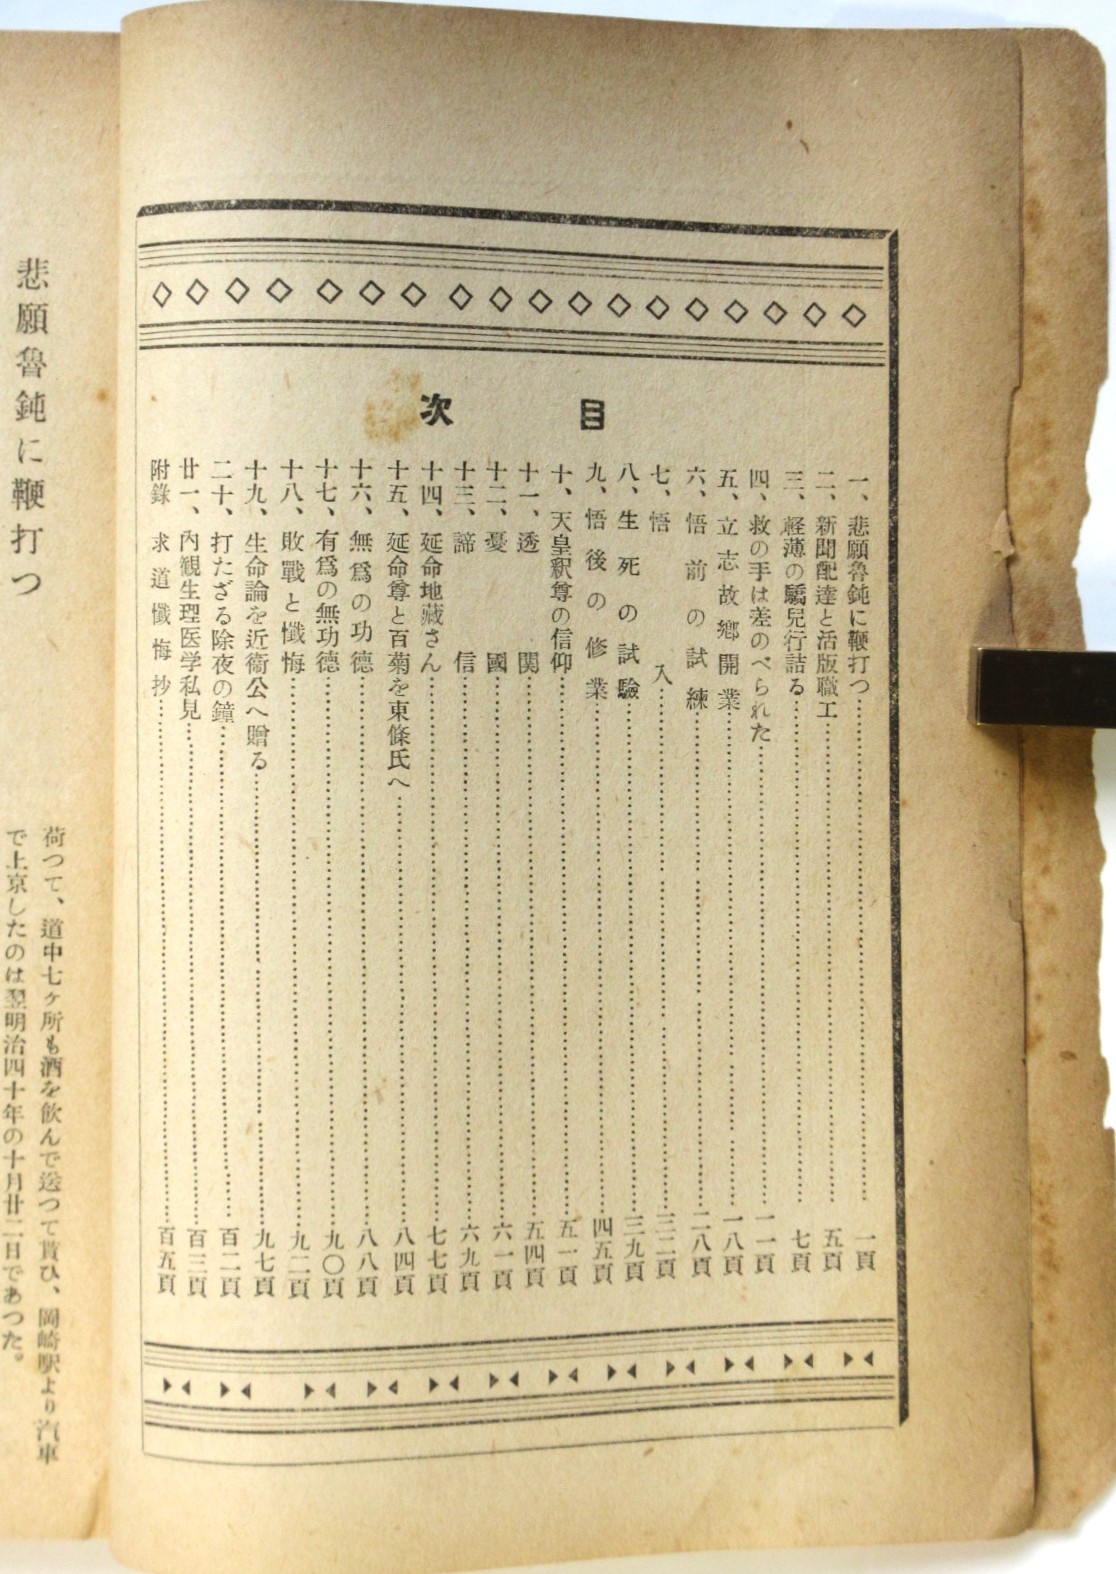 目次
一、悲願魯鈍に鞭打つ……一頁
二、新聞配達と活版職工……五頁
三、軽薄の驕兒行詰る……七頁
四、救の手は差のべられた……一一頁
五、立志故鄕開業……一八頁
六、悟前の試練……二八頁
七、悟入……三二頁
八、生死の試驗……三九頁
九、悟後の修業……四五頁
十、天皇釈尊の信仰……五一頁
十一、透関……五四頁
十二、憂國……六一頁
十三、諦信……六九頁
十四、延命地藏さん……七七頁
十五、延命尊と百菊を東條氏へ……八四頁
十六、無爲の功德……八八頁
十七、有爲の無功德……九〇頁
十八、敗戰と懺悔……九二頁
十九、生命論を近衞公へ贈る……九七頁
二十、打たざる除夜の鐘……百二頁
廿一、內観生理医学私見……百三頁
附錄 求道懺悔抄……百五頁
悲願魯鈍に鞭打つ
荷つて、道中七ヶ所も酒を飲んで送つて貰ひ、岡崎駅より汽車
で上京したのは翌明治四十年の十月廿二日であつた。